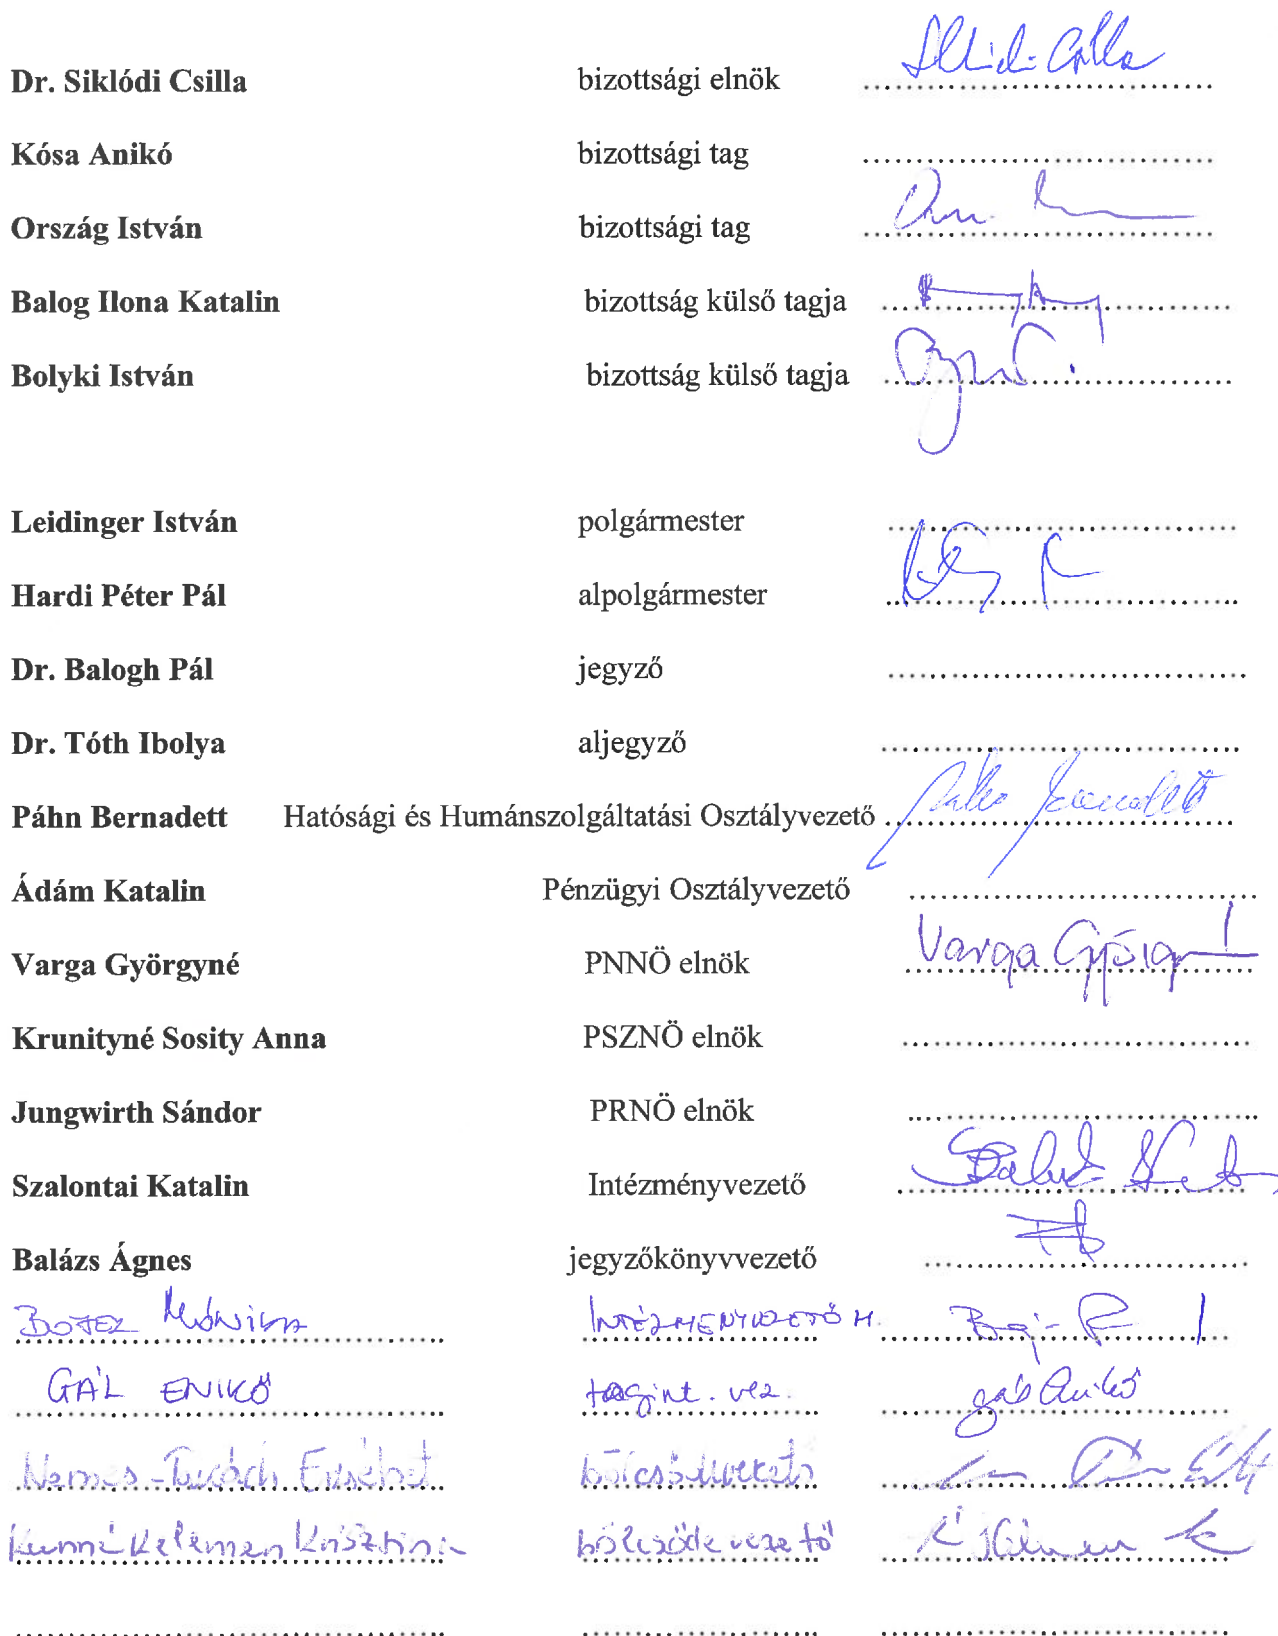 Dr. Siklódi Csilla bizottsági elnök
Kósa Anikó bizottsági tag
Ország István bizottsági tag
Balog Ilona Katalin bizottság külső tagja
Bolyki István bizottság külső tagja
Leidinger István polgármester
Hardi Péter Pál alpolgármester
Dr. Balogh Pál jegyző
Dr. Tóth Ibolya aljegyző
Páhn Bernadett Hatósági és Humánszolgáltatási Osztályvezető
Ádám Katalin Pénzügyi Osztályvezető
Varga Györgyné PNNÖ elnök Varga
Krunityné Sosity Anna PSZNÖ elnök
Jungwirth Sándor PRNÖ elnök
Szalontai Katalin Intézményvezető
Balázs Ágnes jegyzőkönyvvezető
Mónika INTÉZMÉNYVEZETŐ H.
GÁL ENIKŐ tagint. vez.
Erzsébet
Kelemen Krisztina bölcsőde vezető